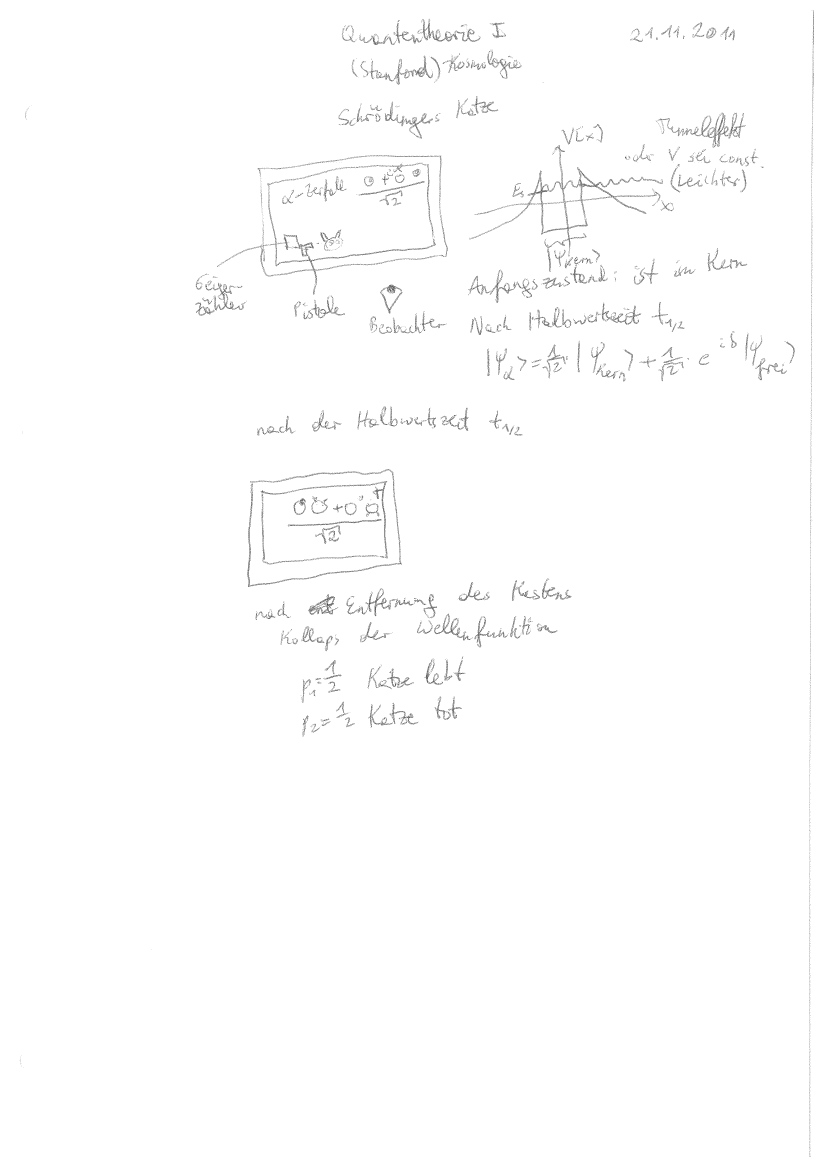 Quantentheorie I
21.11.2011
(Stanford) Kosmologie
Schrödingers Katze
α-Zerfall
√2
Geiger-
zähler
Pistole
Beobachter
V(x)
Tunneleffekt
oder V sei const.
(Leichter)
x
|ψKern⟩
Anfangszustand: ist im Kern
Nach Halbwertszeit t1/2
|ψα⟩ = 1/√2 · |ψKern⟩ + 1/√2 · e^iδ |ψfrei⟩
nach der Halbwertszeit t1/2
√2
nach Entfernung des Kastens
Kollaps der Wellenfunktion
p1 = 1/2 Katze lebt
p2 = 1/2 Katze tot